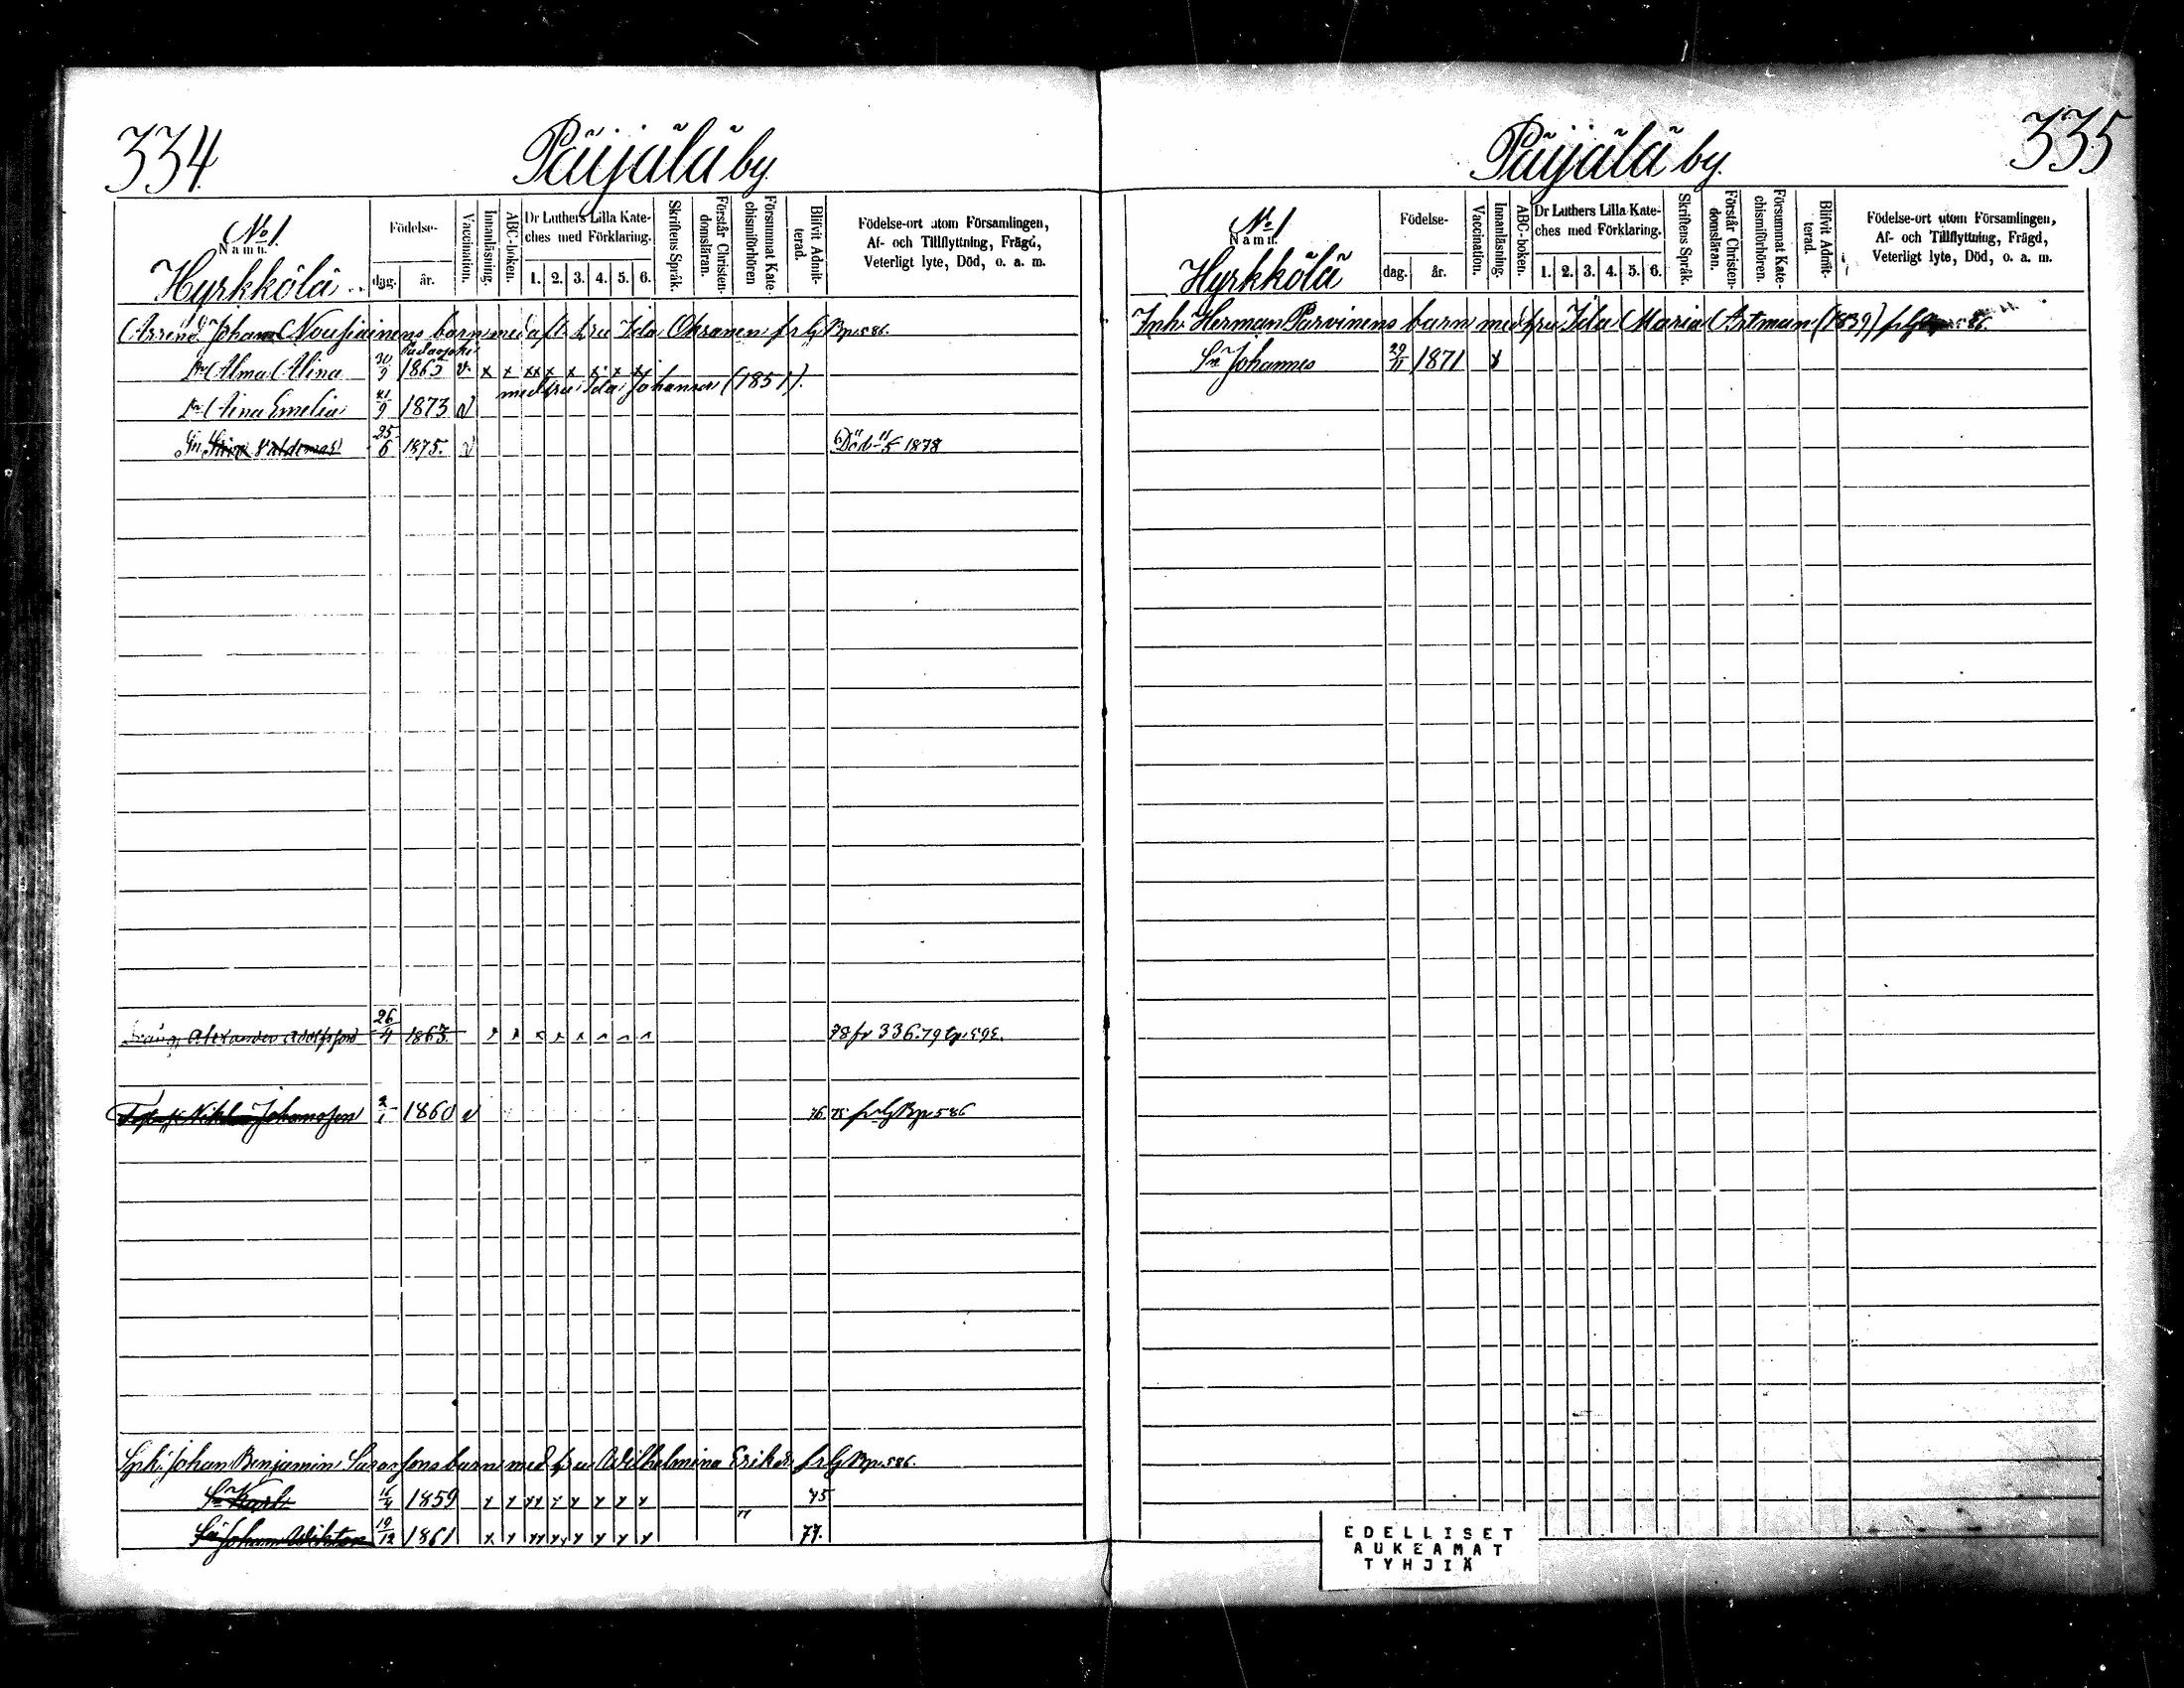 334.
Päijälä by
No 1.
Namn.
Hyrkkölä
Födelse-
dag.
år.
Vaccination.
Innanläsning.
ABC-boken.
Dr Luthers Lilla Kate-
ches med Förklaring.
1. 2. 3. 4. 5. 6.
Skriftens Språk.
Förstår Christen-
domsläran.
Försummat Kate-
chismiförhören
Blifvit Admit-
terad.
Födelse-ort utom Församlingen,
Af- och Tillflyttning, Frägd,
Veterligt lyte, Död, o. a. m.
Arrend. Johan Nousiainens barn med afl. hru Ida Ohranen fr. G Bp. 586.
Padasjoki
Dr Alma Alina 30/9 1863 v. x x xx x x x x x
med hru Ida Johansd. (1851).
Dr Aina Emelia 21/9 1873 v
Sn Valdemar 25/6 1875. v Död 11/5 1878
Alexander Adolfsson 26/4 1863. x x x x x x x x 78 fr 336. 79 tp. 592.
Niklas Johansson 2/1 1860 v 76 75 fr G Bp 586
Inh. Johan Benjamin barn med hru Wilhelmina Eriksd. fr G Bp. 586.
Sn Karl 16/4 1859 x x xx x x x x x " 75
Sn Johan Wiktor 19/12 1861 x x xx xx x x x x 77.
335
Päijälä by.
No 1
Namn.
Hyrkkölä
Födelse-
dag.
år.
Vaccination.
Innanläsning.
ABC-boken.
Dr Luthers Lilla Kate-
ches med Förklaring.
1. 2. 3. 4. 5. 6.
Skriftens Språk.
Förstår Christen-
domsläran.
Försummat Kate-
chismiförhören.
Blifvit Admit-
terad.
Födelse-ort utom Församlingen,
Af- och Tillflyttning, Frägd,
Veterligt lyte, Död, o. a. m.
Inh. Herman Parvinens barn med hru Ida Maria Artman (1839) fr G 586.
Sn Johannes 29/11 1871 x
EDELLISET
AUKEAMAT
TYHJIÄ